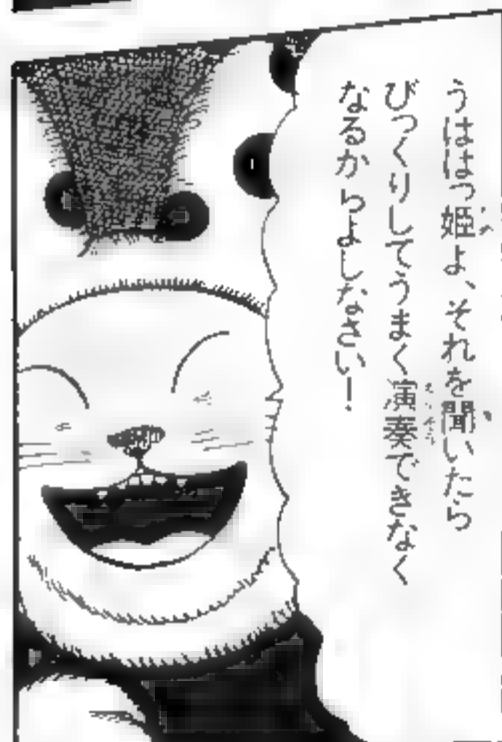 うははっ姫よ、それを聞いたら
びっくりしてうまく演奏できなく
なるからよしなさい!